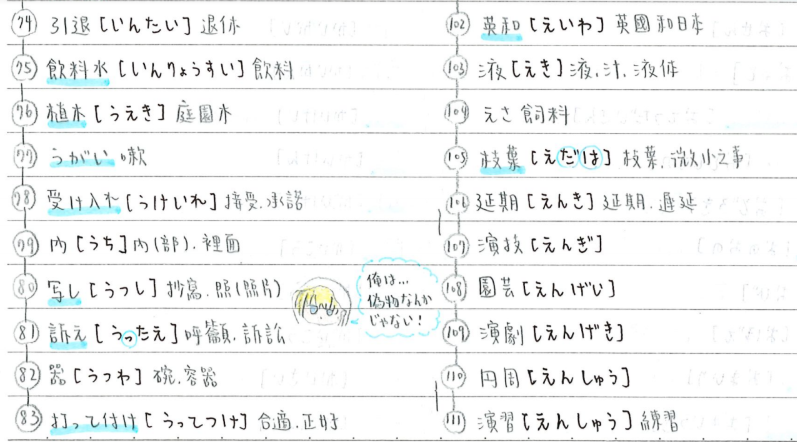 74 引退【いんたい】退休
75 飲料水【いんりょうすい】飲料
76 植木【うえき】庭園木
77 うがい 嗽
78 受け入れ【うけいれ】接受.承諾
79 内【うち】内(部).裡面
80 写し【うつし】抄寫.照(照片)
俺は…
偽物なんか
じゃない!
81 訴え【うったえ】呼籲.訴訟
82 器【うつわ】碗.容器
83 打って付け【うってつけ】合適.正好
102 英和【えいわ】英國和日本
103 液【えき】液.汁.液体
104 えさ 飼料
105 枝葉【えだは】枝葉.微小之事
106 延期【えんき】延期.遲延
107 演技【えんぎ】
108 園芸【えんげい】
109 演劇【えんげき】
110 円周【えんしゅう】
111 演習【えんしゅう】練習